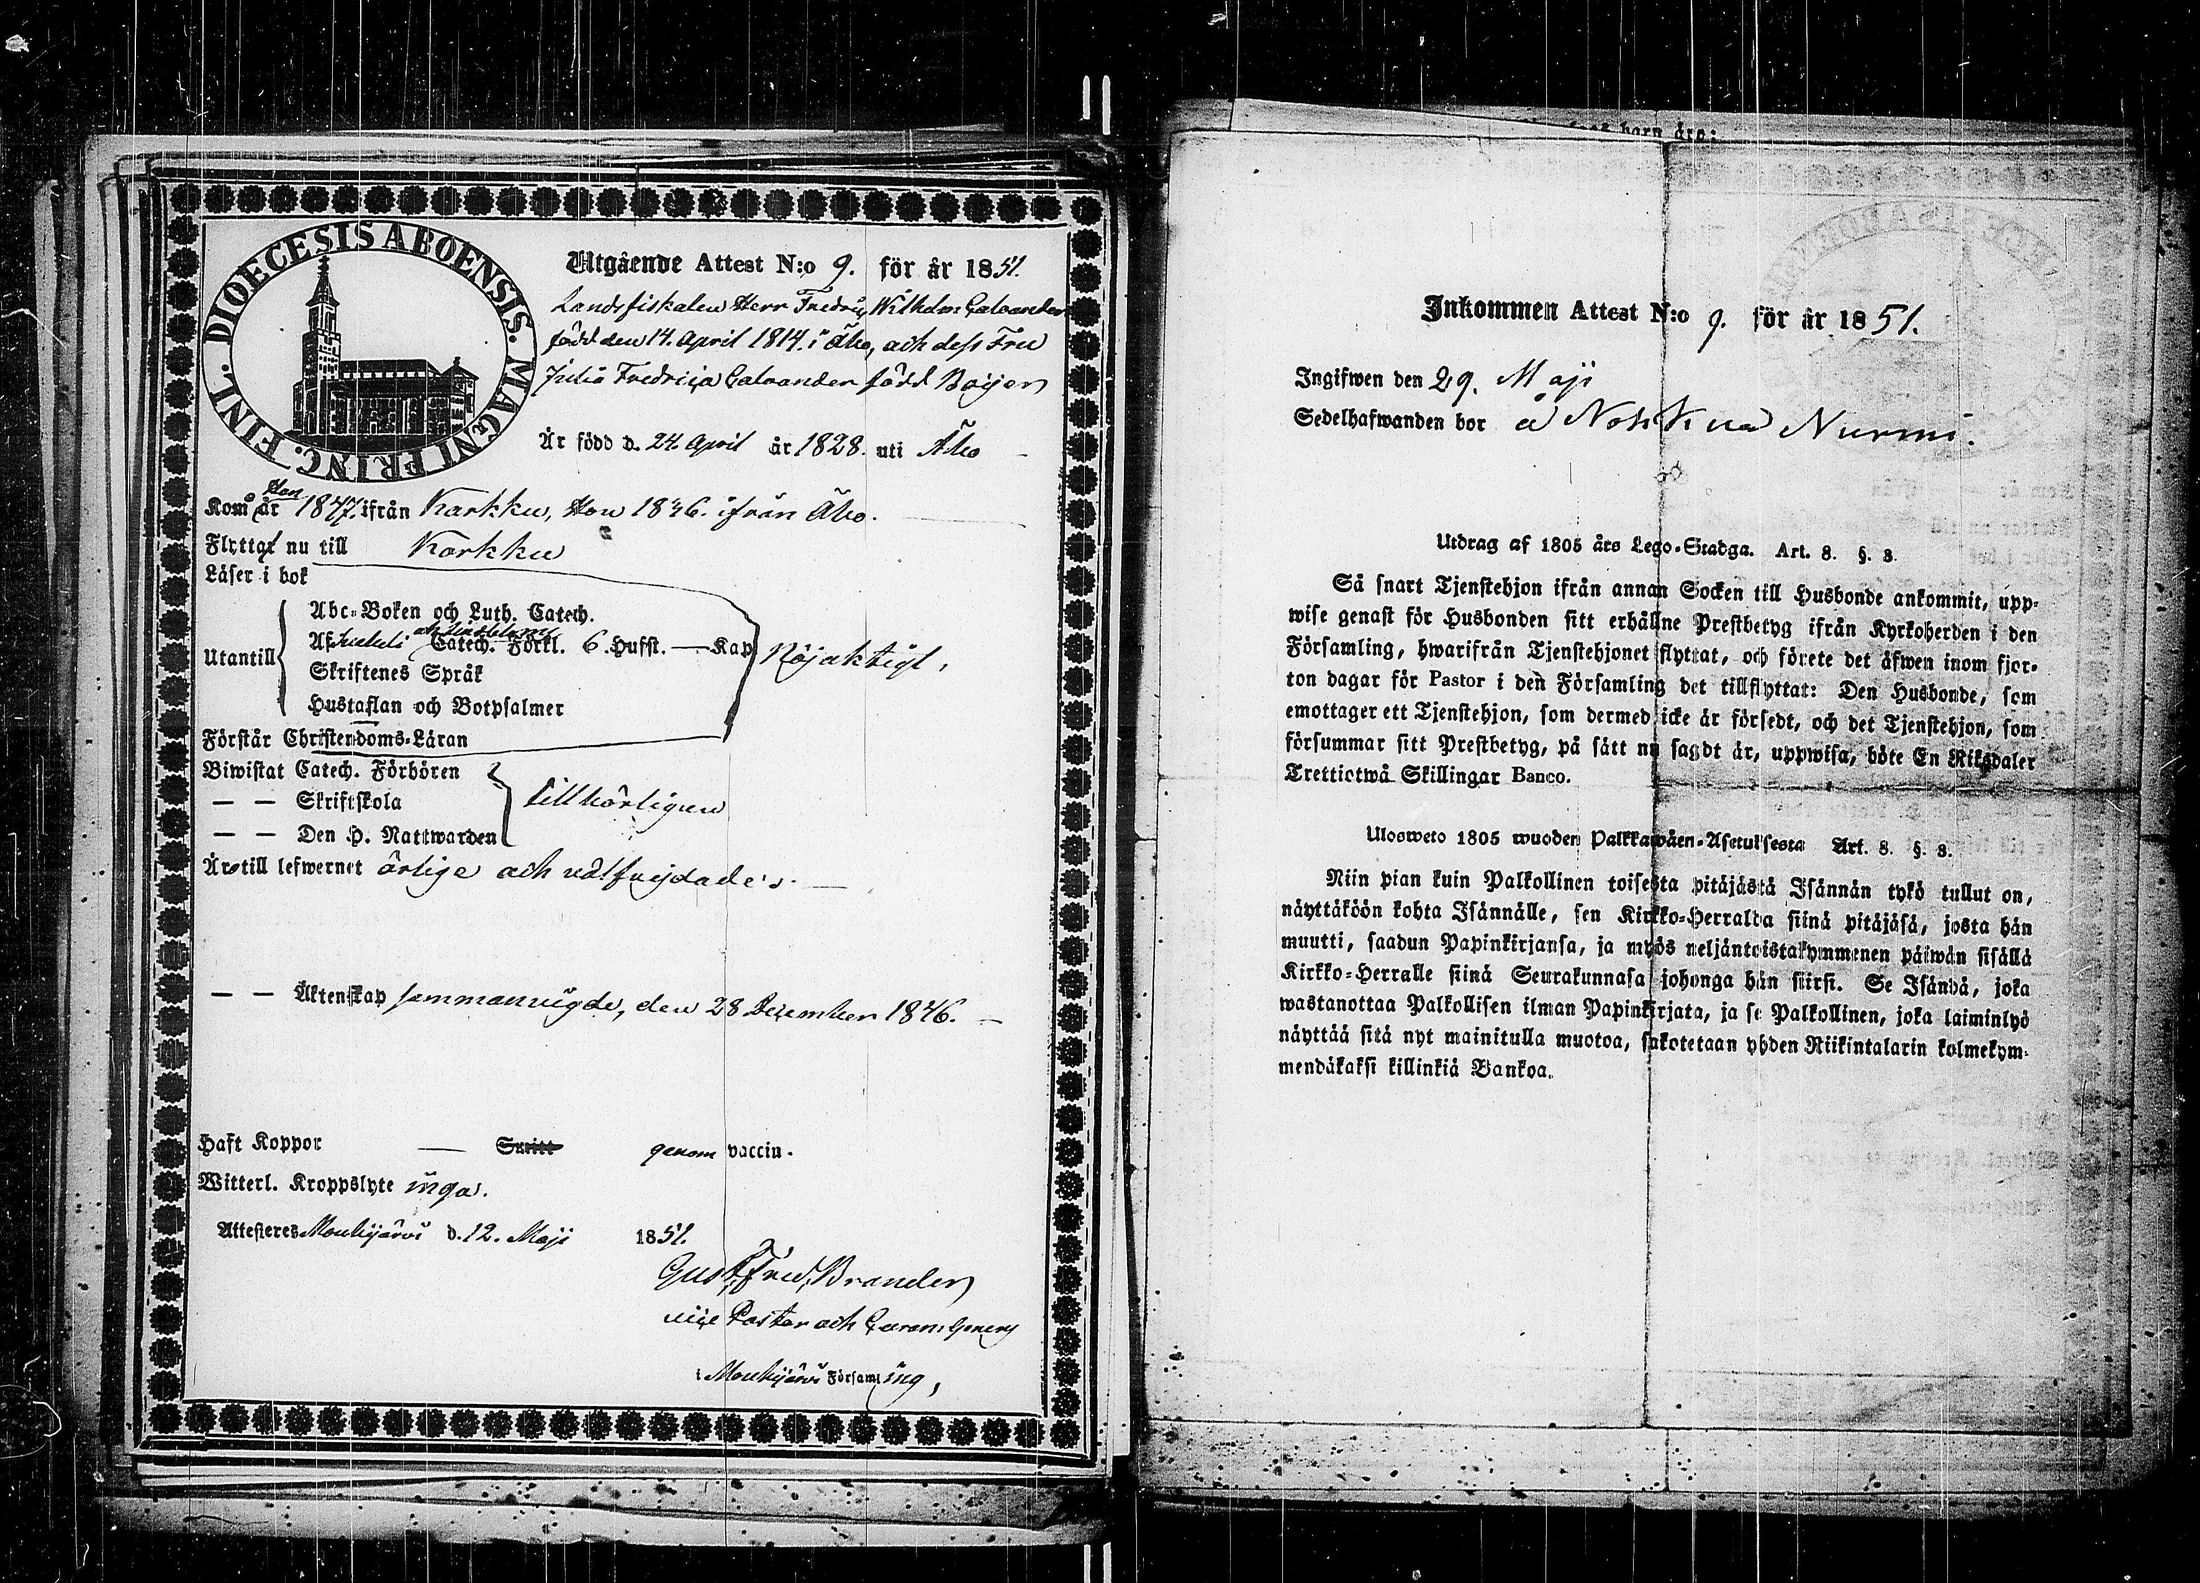 DIOECESIS ABOENSIS. MAGNI PRINC. FINL.
Utgående Attest N:o 9. för år 1851.
Landsfiskalen Herr Fredric Wilhelm Calvander
född den 14. April 1814. i Åbo, och dess Fru
Julia Fredrica Calvander född Boijer
Är född d. 24. April år 1828. uti Åbo
Han
Kom år 1847. ifrån Karkku, Hon 1846. ifrån Åbo.
Flyttat nu till Karkku
Läser i bok
Abc-Boken och Luth. Catech.
Af Catech. Förkl. 6. Hufst. — Kap
Utantill
Nöjaktigt,
Skriftenes Språk
Hustaflan och Botpsalmer
Förstår Christendoms-Läran
Biwistat Catech. Förhören
— — Skriftskola
tillbörligen
— — Den H. Nattwarden
Äro till lefwernet ärlige och välfrejdade.
— — Äktenskap sammanvigde, den 28 December 1846. —
Haft Koppor — genom vaccin.
Witterl. Kroppslyte inga.
Attesteres Mouhijärvi d. 12. Maji 1851.
Gust. Fred. Brander
vice Pastor och
i Mouhijärvi Församling,
barn äro:
Inkommen Attest N:o 9. för år 1851.
Ingifwen den 29. Maji
Sedelhafwanden bor å Nohkua Nurmi.
Utdrag af 1805 års Lego-Stadga. Art. 8. §. 3.
Så snart Tjenstehjon ifrån annan Socken till Husbonde ankommit, upp-
wise genast för Husbonden sitt erhållne Prestbetyg ifrån Kyrkoherden i den
Församling, hwarifrån Tjenstehjonet flyttat, och förete det äfwen inom fjor-
ton dagar för Pastor i den Församling det tillflyttat: Den Husbonde, som
emottager ett Tjenstehjon, som dermed icke är försedt, och det Tjenstehjon, som
försummar sitt Prestbetyg, på sätt nu sagdt är, uppwisa, böte En Riksdaler
Trettiotwå Skillingar Banco.
Ulosweto 1805 wuoden Palkkawäen-Asetuksesta Art. 8. §. 3.
Niin pian kuin Palkollinen toisesta pitäjästä Isännän tykö tullut on,
näyttäköön kohta Isännälle, sen Kirkko-Herralda siinä pitäjäsä, josta hän
muutti, saadun Papinkirjansa, ja myös neljäntoistakymmenen päiwän sisällä
Kirkko-Herralle siinä Seurakunnasa johonga hän siirsi. Se Isändä, joka
wastanottaa Palkollisen ilman Papinkirjata, ja se Palkollinen, joka laiminlyö
näyttää sitä nyt mainitulla muotoa, sakotetaan yhden Riikintalarin kolmekym-
mendäkaksi killinkiä Bankoa.